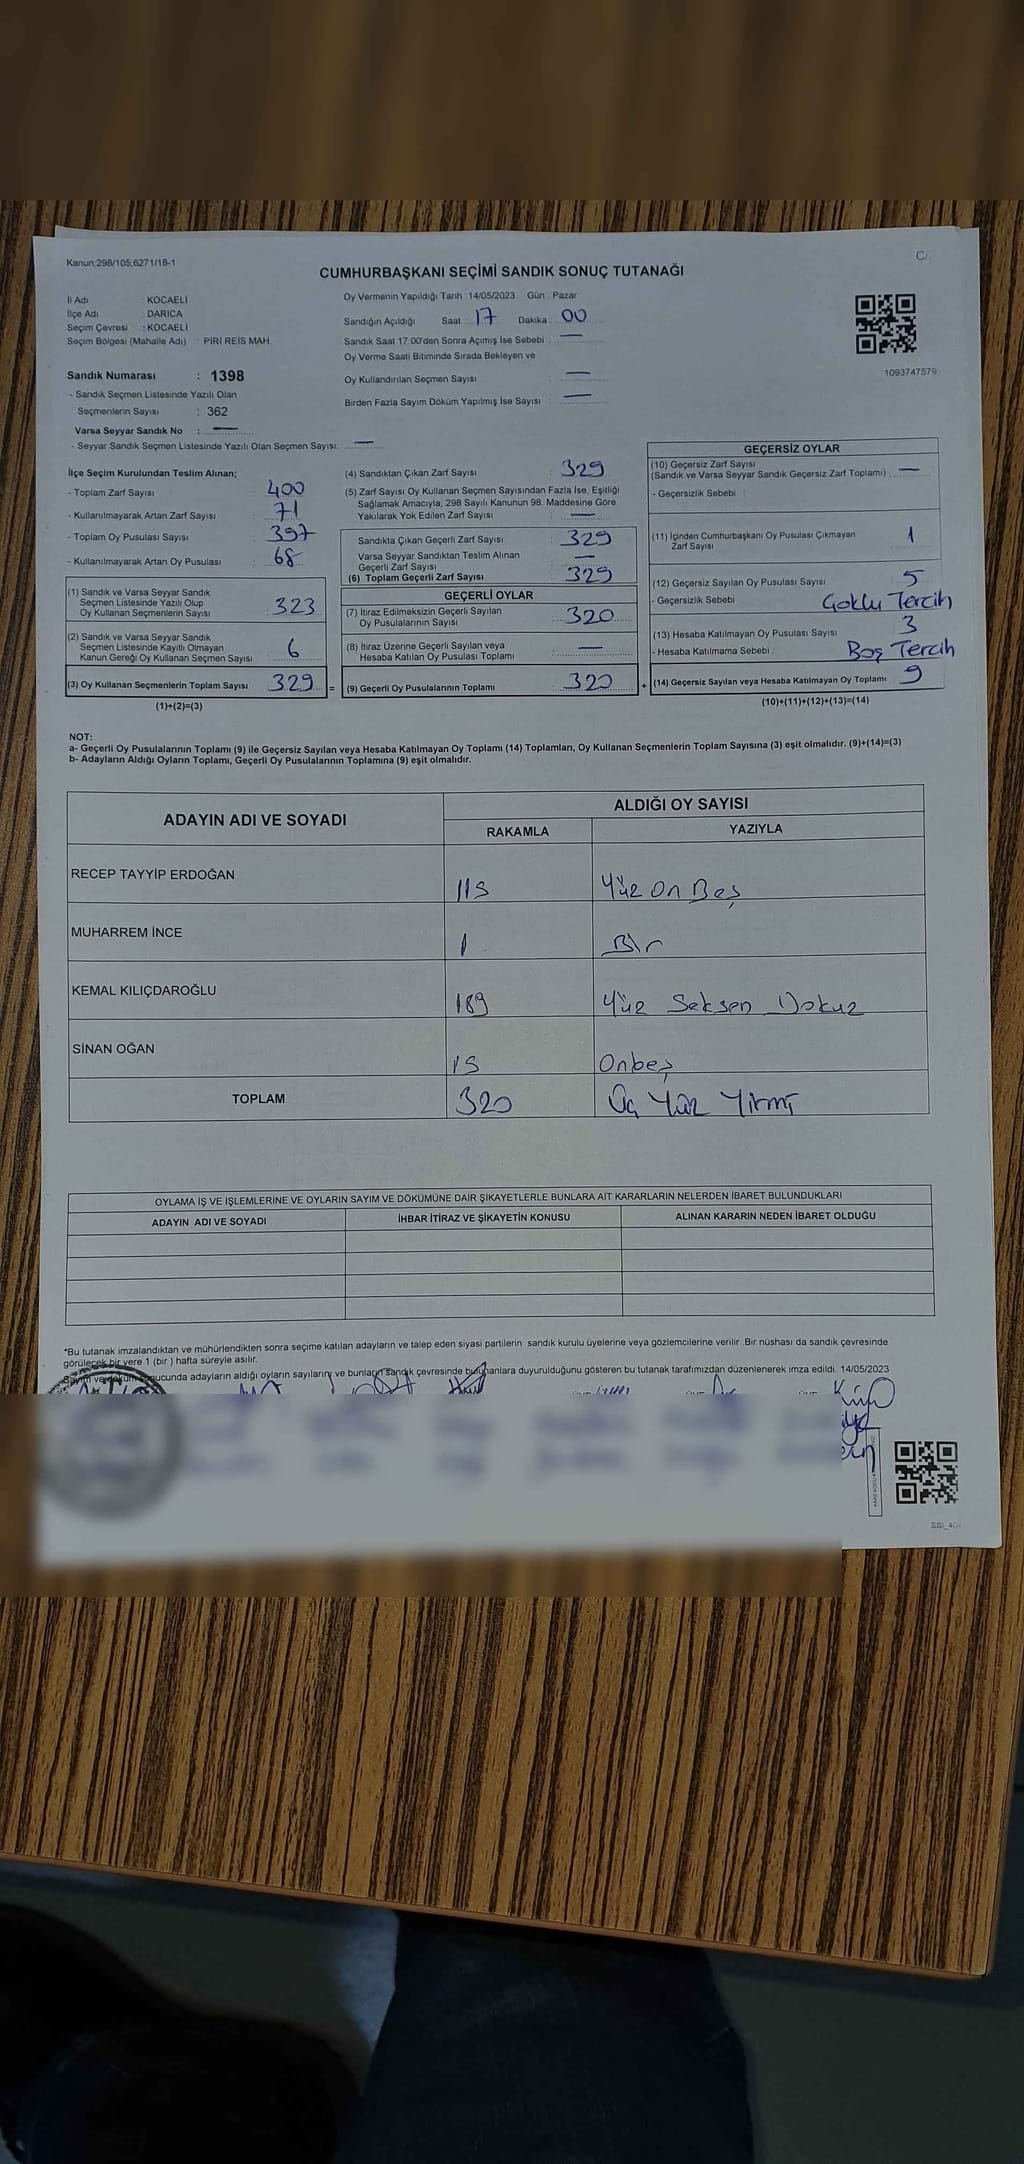 Kanun;298/105;6271/18-1
C/.
CUMHURBAŞKANI SEÇİMİ SANDIK SONUÇ TUTANAĞI
İl Adı : KOCAELİ
İlçe Adı : DARICA
Seçim Çevresi : KOCAELİ
Seçim Bölgesi (Mahalle Adı) : PİRİ REİS MAH.
Sandık Numarası : 1398
- Sandık Seçmen Listesinde Yazılı Olan
Seçmenlerin Sayısı : 362
Varsa Seyyar Sandık No : —
- Seyyar Sandık Seçmen Listesinde Yazılı Olan Seçmen Sayısı: —
Oy Vermenin Yapıldığı Tarih : 14/05/2023 Gün : Pazar
Sandığın Açıldığı Saat : 17 Dakika : 00
Sandık Saat 17:00'den Sonra Açımış İse Sebebi : —
Oy Verme Saati Bitiminde Sırada Bekleyen ve
Oy Kullandırılan Seçmen Sayısı : —
Birden Fazla Sayım Döküm Yapılmış İse Sayısı : —
1093747579
İlçe Seçim Kurulundan Teslim Alınan;
- Toplam Zarf Sayısı : 400
- Kullanılmayarak Artan Zarf Sayısı : 71
- Toplam Oy Pusulası Sayısı : 397
- Kullanılmayarak Artan Oy Pusulası : 68
(1) Sandık ve Varsa Seyyar Sandık
Seçmen Listesinde Yazılı Olup
Oy Kullanan Seçmenlerin Sayısı : 323
(2) Sandık ve Varsa Seyyar Sandık
Seçmen Listesinde Kayıtlı Olmayan
Kanun Gereği Oy Kullanan Seçmen Sayısı : 6
(3) Oy Kullanan Seçmenlerin Toplam Sayısı : 329 =
(1)+(2)=(3)
(4) Sandıktan Çıkan Zarf Sayısı : 329
(5) Zarf Sayısı Oy Kullanan Seçmen Sayısından Fazla İse, Eşitliği
Sağlamak Amacıyla, 298 Sayılı Kanunun 98. Maddesine Göre
Yakılarak Yok Edilen Zarf Sayısı : —
Sandıkta Çıkan Geçerli Zarf Sayısı : 329
Varsa Seyyar Sandıktan Teslim Alınan
Geçerli Zarf Sayısı : —
(6) Toplam Geçerli Zarf Sayısı : 329
GEÇERLİ OYLAR
(7) İtiraz Edilmeksizin Geçerli Sayılan
Oy Pusulalarının Sayısı : 320
(8) İtiraz Üzerine Geçerli Sayılan veya
Hesaba Katılan Oy Pusulası Toplamı : —
(9) Geçerli Oy Pusulalarının Toplamı : 320 +
GEÇERSİZ OYLAR
(10) Geçersiz Zarf Sayısı
(Sandık ve Varsa Seyyar Sandık Geçersiz Zarf Toplamı) : —
- Geçersizlik Sebebi :
(11) İçinden Cumhurbaşkanı Oy Pusulası Çıkmayan
Zarf Sayısı : 1
(12) Geçersiz Sayılan Oy Pusulası Sayısı : 5
- Geçersizlik Sebebi : Çoklu Tercih
(13) Hesaba Katılmayan Oy Pusulası Sayısı : 3
- Hesaba Katılmama Sebebi : Boş Tercih
(14) Geçersiz Sayılan veya Hesaba Katılmayan Oy Toplamı : 9
(10)+(11)+(12)+(13)=(14)
NOT:
a- Geçerli Oy Pusulalarının Toplamı (9) ile Geçersiz Sayılan veya Hesaba Katılmayan Oy Toplamı (14) Toplamları, Oy Kullanan Seçmenlerin Toplam Sayısına (3) eşit olmalıdır. (9)+(14)=(3)
b- Adayların Aldığı Oyların Toplamı, Geçerli Oy Pusulalarının Toplamına (9) eşit olmalıdır.
ADAYIN ADI VE SOYADI
ALDIĞI OY SAYISI
RAKAMLA YAZIYLA
RECEP TAYYİP ERDOĞAN 115 Yüz On Beş
MUHARREM İNCE 1 Bir
KEMAL KILIÇDAROĞLU 189 Yüz Seksen Dokuz
SİNAN OĞAN 15 Onbeş
TOPLAM 320 Üç Yüz Yirmi
OYLAMA İŞ VE İŞLEMLERİNE VE OYLARIN SAYIM VE DÖKÜMÜNE DAİR ŞİKAYETLERLE BUNLARA AİT KARARLARIN NELERDEN İBARET BULUNDUKLARI
ADAYIN ADI VE SOYADI İHBAR İTİRAZ VE ŞİKAYETİN KONUSU ALINAN KARARIN NEDEN İBARET OLDUĞU
*Bu tutanak imzalandıktan ve mühürlendikten sonra seçime katılan adayların ve talep eden siyasi partilerin sandık kurulu üyelerine veya gözlemcilerine verilir .Bir nüshası da sandık çevresinde
görülecek bir yere 1 (bir ) hafta süreyle asılır.
Sayım ve döküm sonucunda adayların aldığı oyların sayılarını ve bunların sandık çevresinde bulunanlara duyurulduğunu gösteren bu tutanak tarafımızdan düzenlenerek imza edildi. 14/05/2023